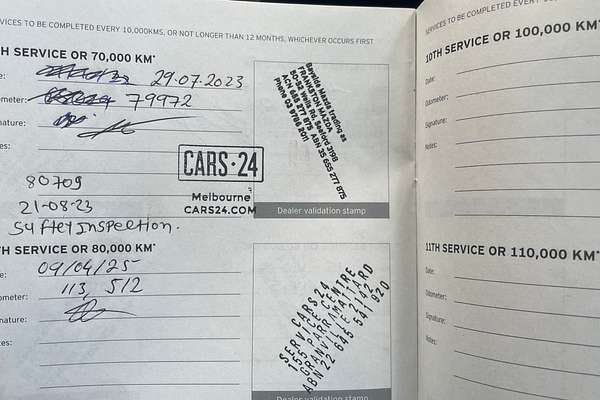 SERVICES TO BE COMPLETED EVERY 10,000KMS, OR NOT LONGER THAN 12 MONTHS, WHICHEVER OCCURS FIRST
TH SERVICE OR 70,000 KM*
e: 29.07.2023
ometer: 79972
nature:
es:
Bayside Mazda trading as
FRANKSTON MAZDA
50-52 Wells Rd, Seaford 3198
ACN 655 277 875 ABN 35 655 277 875
Phone 03 9786 2011
CARS·24
Melbourne
CARS24.COM
Dealer validation stamp
80709
21-08-23
Saftey Inspection.
TH SERVICE OR 80,000 KM*
e: 09/04/25
ometer: 113,512
nature:
es:
CARS24
SERVICE CENTRE
155 PARRAMATTA RD
GRANVILLE 2142
ABN 22 645 541 920
Dealer validation stamp
SERVICES TO BE COMPLETED EVERY
10TH SERVICE OR 100,000 KM
Date:
Odometer:
Signature:
Notes:
11TH SERVICE OR 110,000 KM*
Date:
Odometer:
Signature:
Notes: